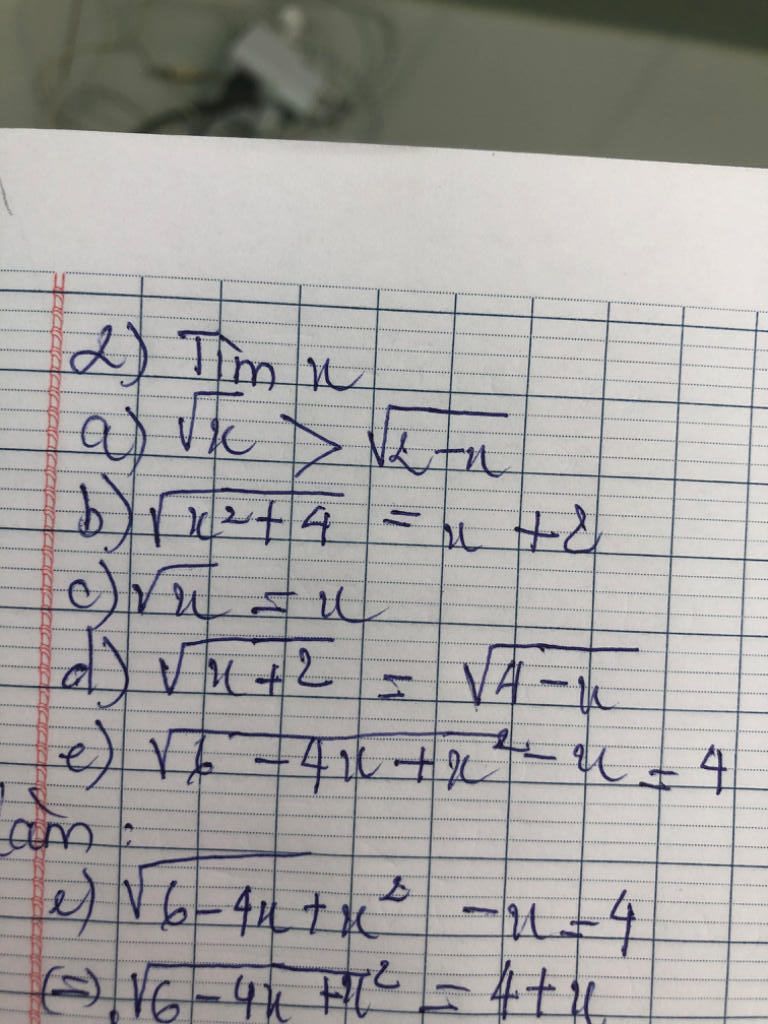 2) Tìm x
a) √x > √(2-x)
b) √(x²+4) = x + 2
c) √x = x
d) √(x+2) = √(4-x)
e) √(6-4x+x²) - x = 4
Làm :
e) √(6-4x+x²) - x = 4
(=) √(6-4x+x²) = 4+x